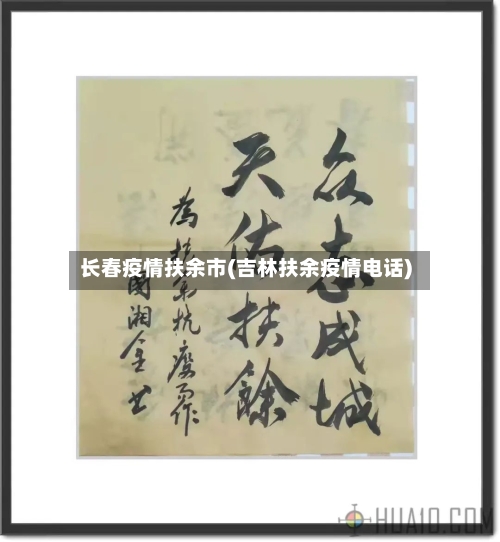 众志成城
天佑扶餘
為扶余抗疫而作
国湘全书
长春疫情扶余市(吉林扶余疫情电话)
HUA10.COM